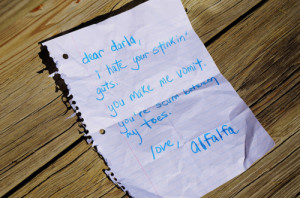 dear darla,
i hate your stinkin'
guts.
you make me vomit.
you're scum between
my toes.
love,
alfalfa